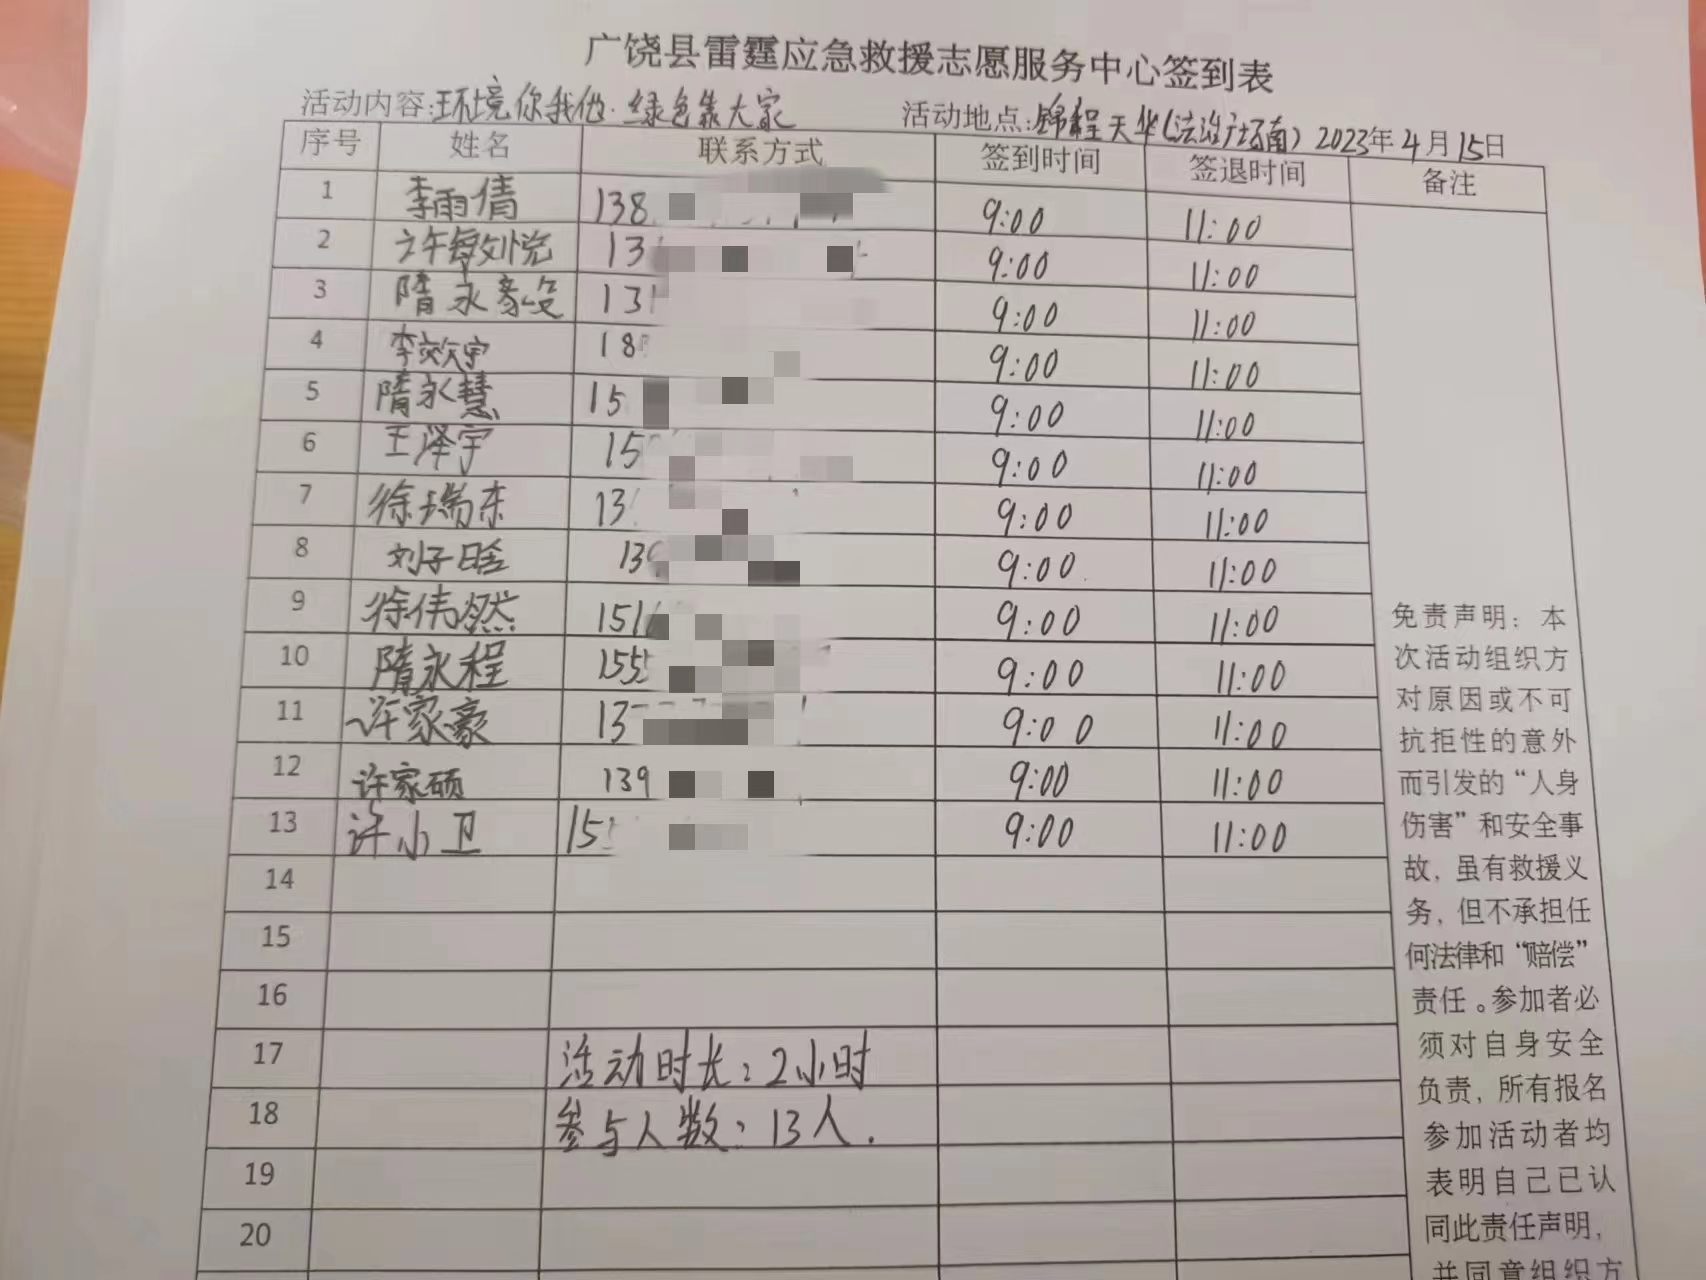 广饶县雷霆应急救援志愿服务中心签到表
活动内容:环境你我他·绿色靠大家 活动地点:锦程天华(法治广场南) 2023年4月15日
序号 姓名 联系方式 签到时间 签退时间 备注
1 李雨倩 138 9:00 11:00
2 许敏悦 13 9:00 11:00
3 隋永豪 13 9:00 11:00
4 李效宇 18 9:00 11:00
5 隋永慧 15 9:00 11:00
6 王泽宇 15 9:00 11:00
7 徐瑞东 13 9:00 11:00
8 刘子晗 139 9:00 11:00
9 徐伟然 151 9:00 11:00
10 隋永程 155 9:00 11:00
11 许家豪 13 9:00 11:00
12 许家硕 139 9:00 11:00
13 许小卫 15 9:00 11:00
14
15
16
17 活动时长:2小时
18 参与人数:13人.
19
20
免责声明:本
次活动组织方
对原因或不可
抗拒性的意外
而引发的“人身
伤害”和安全事
故,虽有救援义
务,但不承担任
何法律和“赔偿”
责任。参加者必
须对自身安全
负责,所有报名
参加活动者均
表明自己已认
同此责任声明,
并同意组织方